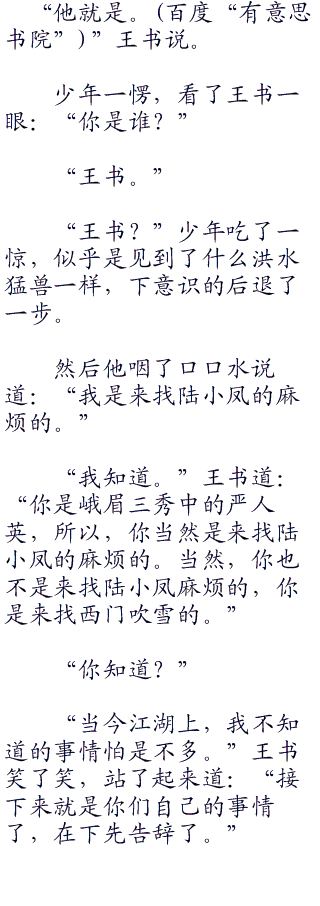 “他就是。(百度“有意思
书院”)”王书说。
少年一愣，看了王书一
眼：“你是谁？”
“王书。”
“王书？”少年吃了一
惊，似乎是见到了什么洪水
猛兽一样，下意识的后退了
一步。
然后他咽了口口水说
道：“我是来找陆小凤的麻
烦的。”
“我知道。”王书道：
“你是峨眉三秀中的严人
英，所以，你当然是来找陆
小凤的麻烦的。当然，你也
不是来找陆小凤麻烦的，你
是来找西门吹雪的。”
“你知道？”
“当今江湖上，我不知
道的事情怕是不多。”王书
笑了笑，站了起来道：“接
下来就是你们自己的事情
了，在下先告辞了。”